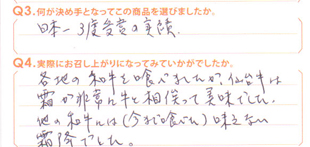 Q3.何が決め手となってこの商品を選びましたか。
日本一3度受賞の実績.
Q4.実際にお召し上がりになってみていかがでしたか。
各地の和牛を喰べましたが仙台牛は
霜が非常に牛と相俟って美味でした.
他の和牛には(今まで食べた)味えない
霜降でした。